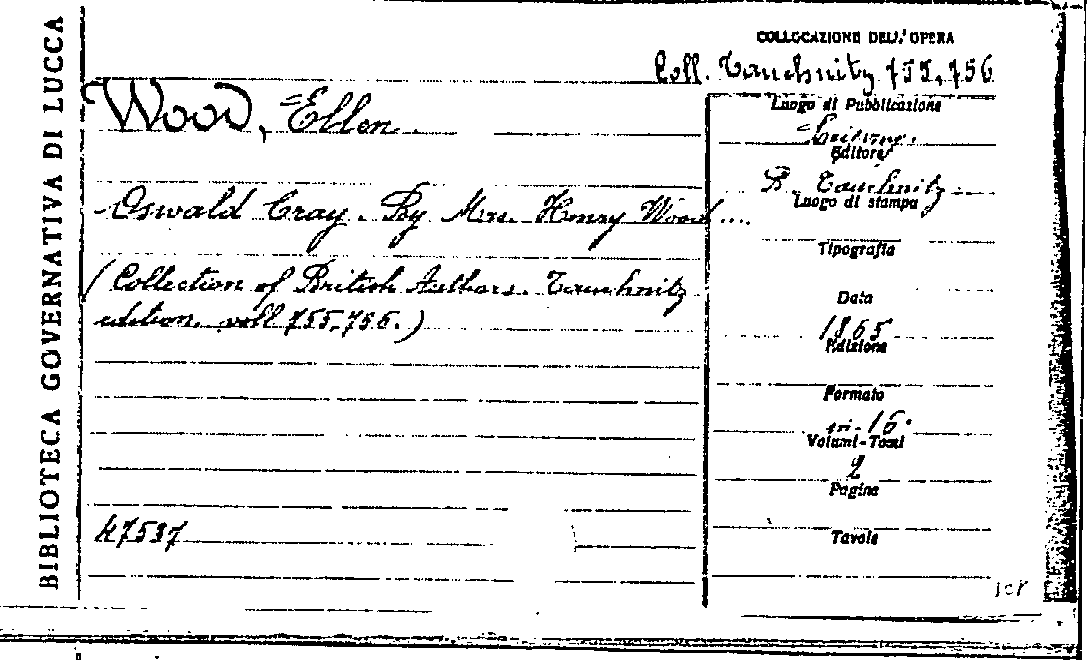 BIBLIOTECA GOVERNATIVA DI LUCCA
COLLOCAZIONE DELL'OPERA
Coll. Tauchnitz 755, 756
Wood, Ellen.
Oswald Cray. By Mrs. Henry Wood....
(Collection of British Authors. Tauchnitz
edition. voll 755, 756.)
47537
Luogo di Pubblicazione
Editore
B. Tauchnitz
Luogo di stampa
Tipografia
Data
1865
Edizione
Formato
in-16°
Volumi-Tomi
2
Pagine
Tavole